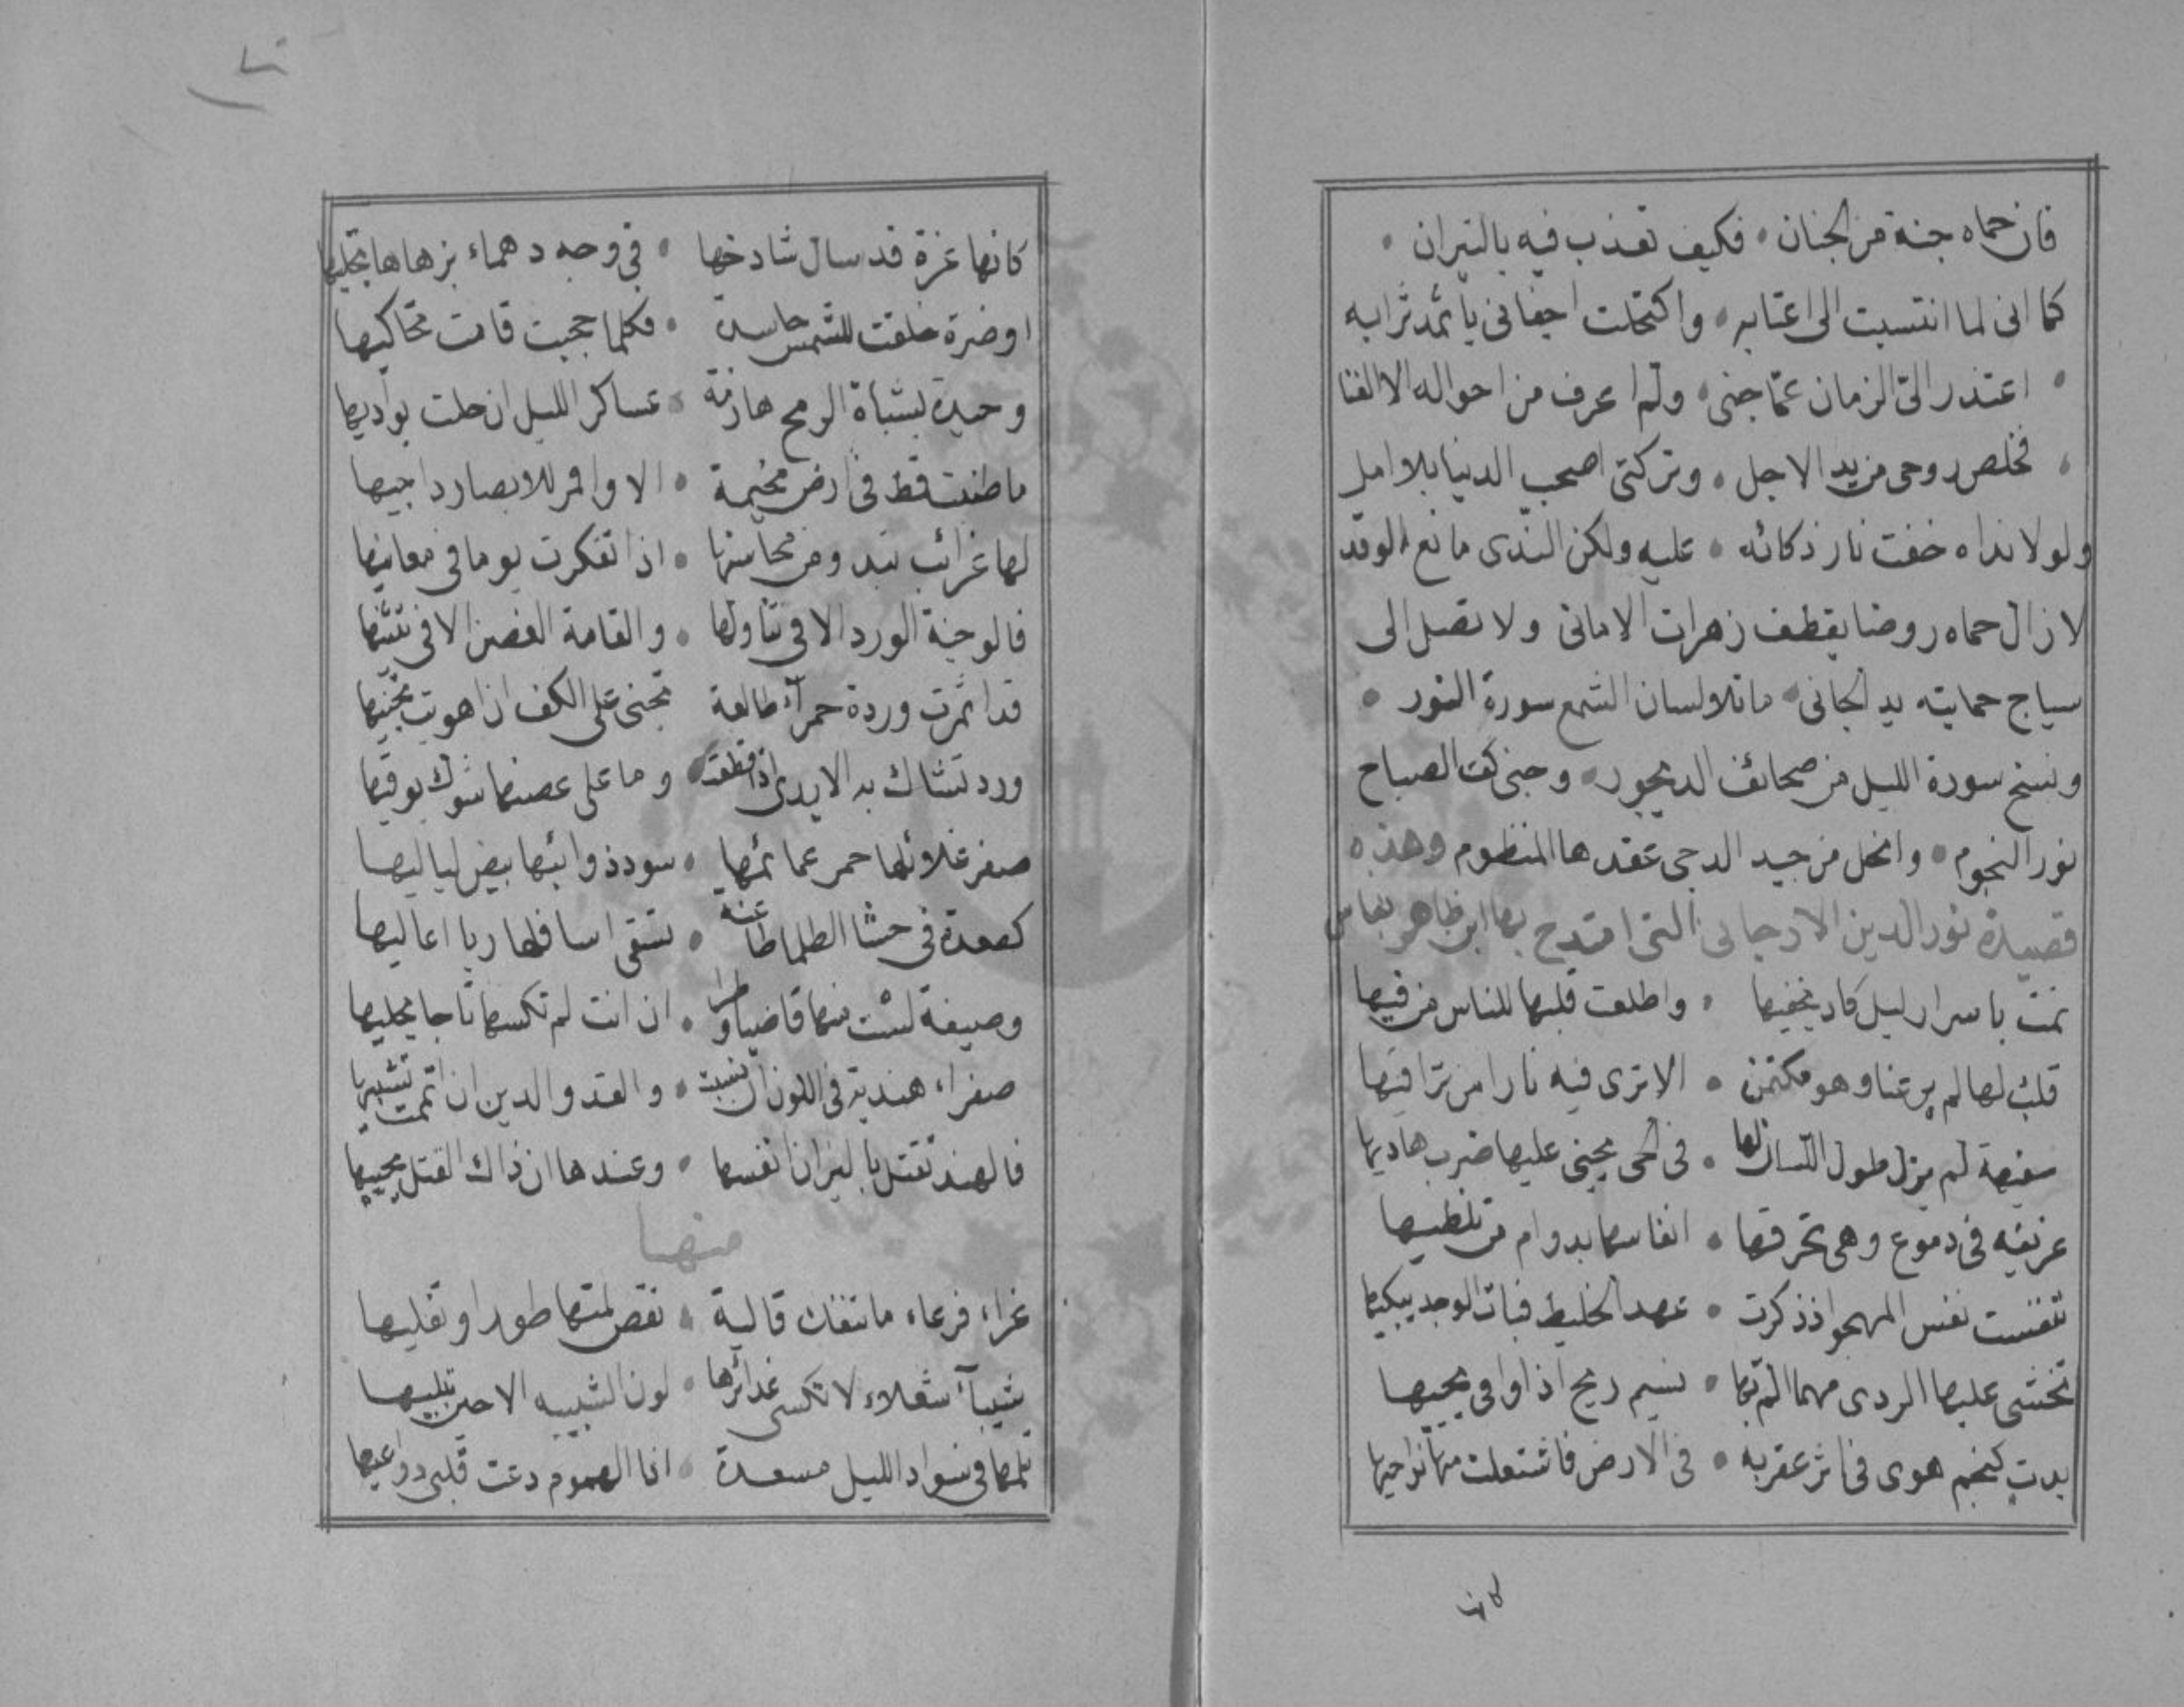 فان حماه جنة من الجنان • فكيف تعذب فيه بالنيران •
كما انى لما انتسبت الى اعتابه • واكتحلت اجفانى باثمد ترابه
• اعتذر الىّ الزمان عمّا جنى • ولم اعرف من احواله الا الفنا
• فخلص روحى من يد الاجل • وتركنى اصحب الدنيا بلا امل
ولولا نداه خفت نار ذكائه • عليه ولكن الندى مانع الوقد
لا زال حماه روضا يقطف زهرات الامانى ولا تصل الى
سياج حمايته يد الجانى • ما تلا لسان الشمع سورة النور •
ونسخ سورة الليل من صحائف الديجور • وجنى كف الصباح
نور النجوم • وانحل من جيد الدجى عقدها المنظوم وهذه
قصيدة نور الدين الارجانى التى امتدح بها ابن طاهر بفاس
نمت باسرار ليل كاد يخفيها • واطلعت قلبها للناس من فيها
قلب لها لم يرعنا وهو مكتمن • الا ترى فيه نارا من تراقيها
سفيهة لم يزل طول اللسان لها • فى الحى يجنى عليها ضرب هاديها
غريقه فى دموع وهى تحرقها • انفاسها بدوام من تلظيها
تنفست نفس المهجو اذ ذكرت • عهد الخليط فبات الوجد يبكيها
تخشى عليها الردى مهما الم بها • نسيم ريح اذا وافى يحييها
بدت كنجم هوى فى اثر عفريه • فى الارض فاشتعلت منها نواحيها
كانها
كانها غرة قد سال شادخها • فى وجه دهماء يزهاها تجليها
او ضرة خلقت للشمس حاسدة • فكلما حجبت قامت تحاكيها
وحيدة بشباة الرمح هازمة • عساكر الليل ان حلت بواديها
ما طنبت قط فى ارض مخيمة • الا واقمر للابصار داجيها
لها غرائب تبدو من محاسنها • اذا تفكرت يوما فى معانيها
فالوجنة الورد الا فى تناولها • والقامة الغصن الا فى تثنيها
قد اثمرت وردة حمرآء طالعة تجنى على الكف ان اهويت تجنيها
ورد تشاك به الايدى اذا قطفت • وما على غصنها شوك يوقيها
صفر غلائلها حمر عمائمها • سود ذوائبها بيض لياليها
كصعدة فى حشا الظلما طاعنة • تسقى اسافلها ريا اعاليها
وصيفة لست منها قاضيا وطرا • ان انت لم تكسها تاجا يحليها
صفراء هندية فى اللون ان نسبت • والقد والدين ان اتممت تشبيها
فالهند تقتل بالنيران انفسها • وعندها ان ذاك القتل يحييها
منها
غراء فرعاء ما تنفك قالية • تقص لمتها طورا وتفليها
شيبآء شعلاء لا تكسى غدائرها • لون الشبيبه الا حين تبليها
فى سواد الليل مسعدة • اذا الهموم دعت قلبى دواعيها